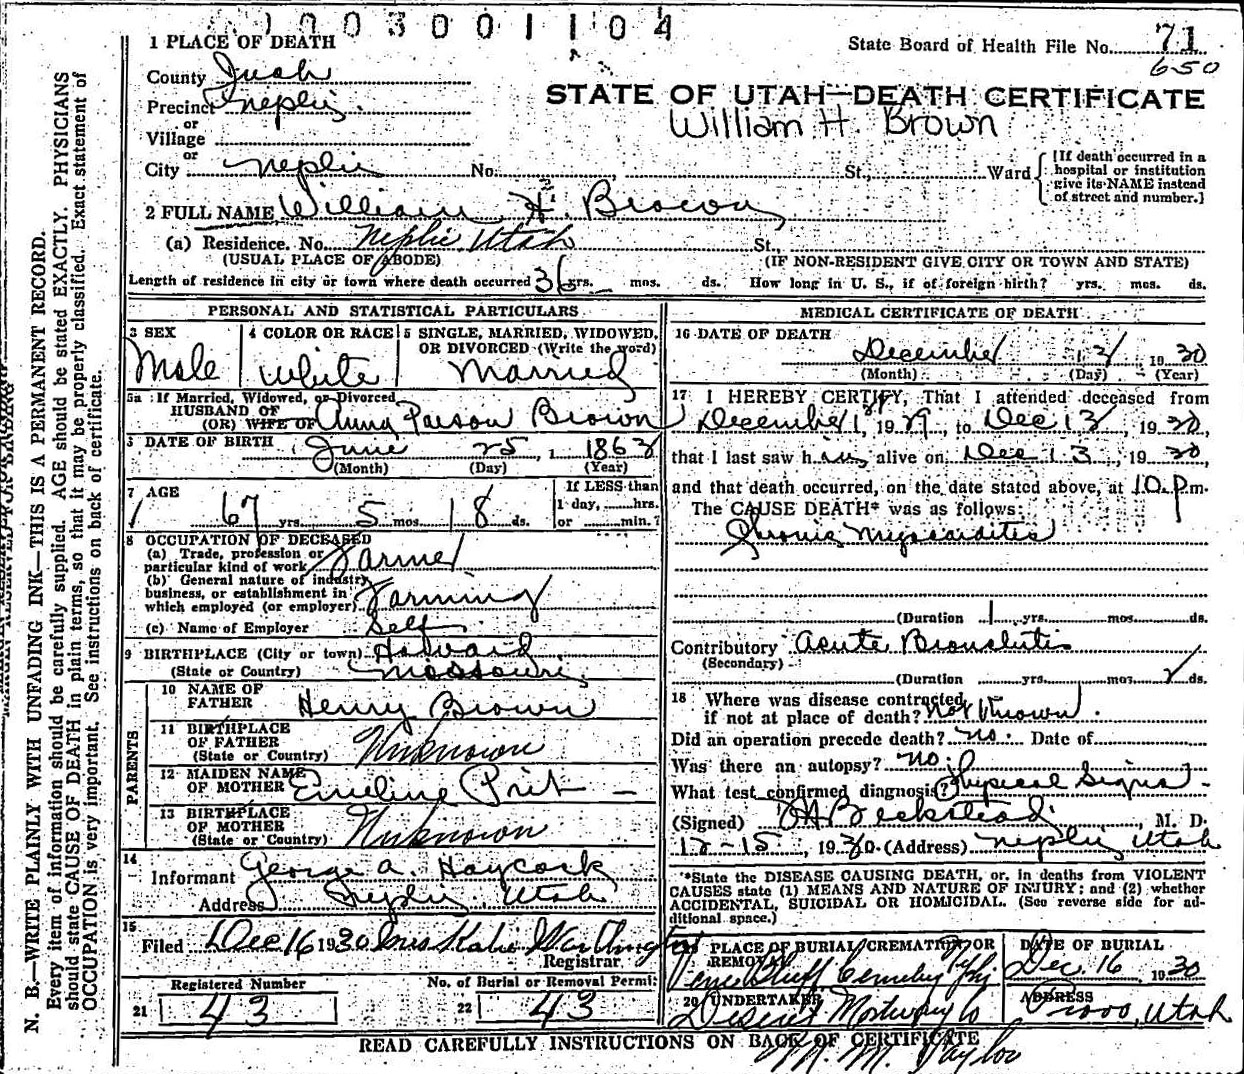 003001104
1 PLACE OF DEATH
State Board of Health File No. 71
650
County Juab
Precinct Nephi
or
Village
or
City Nephi No. St., Ward
STATE OF UTAH—DEATH CERTIFICATE
William H. Brown
[If death occurred in a
hospital or institution
give its NAME instead
of street and number.]
2 FULL NAME William H. Brown
(a) Residence. No. Nephi Utah St.,
(USUAL PLACE OF ABODE) (IF NON-RESIDENT GIVE CITY OR TOWN AND STATE)
Length of residence in city or town where death occurred 36 yrs. mos. ds. How long in U. S., if of foreign birth? yrs. mos. ds.
PERSONAL AND STATISTICAL PARTICULARS
3 SEX
Male
4 COLOR OR RACE
White
5 SINGLE, MARRIED, WIDOWED,
OR DIVORCED (Write the word)
Married
5a If Married, Widowed, or Divorced
HUSBAND OF
(OR) WIFE OF Anna Parson Brown
6 DATE OF BIRTH June 25, 1863
(Month) (Day) (Year)
7 AGE
67 yrs. 5 mos. 18 ds.
If LESS than
1 day, hrs.
or min.?
8 OCCUPATION OF DECEASED
(a) Trade, profession or
particular kind of work Farmer
(b) General nature of industry,
business, or establishment in
which employed (or employer) Farming
(c) Name of Employer Self
9 BIRTHPLACE (City or town) Howard
(State or Country) Missouri
PARENTS
10 NAME OF
FATHER Henry Brown
11 BIRTHPLACE
OF FATHER
(State or Country) Unknown
12 MAIDEN NAME
OF MOTHER Emeline Prit
13 BIRTHPLACE
OF MOTHER
(State or Country) Unknown
14
Informant George A. Haycock
Address Nephi, Utah
15
Filed Dec 16 1930 Mrs Katie Worthington
Registrar
Registered Number
21 43
No. of Burial or Removal Permit
22 43
MEDICAL CERTIFICATE OF DEATH
16 DATE OF DEATH
December 13 1930
(Month) (Day) (Year)
17 I HEREBY CERTIFY, That I attended deceased from
December 1st, 1929, to Dec 13, 1930,
that I last saw him alive on Dec 13, 1930,
and that death occurred, on the date stated above, at 10 p.m.
The CAUSE DEATH* was as follows:
Chronic Myocarditis
(Duration 1 yrs. mos. ds.
Contributory Acute Bronchitis
(Secondary)
(Duration yrs. mos. ds.
18 Where was disease contracted
if not at place of death? Not Known.
Did an operation precede death? no. Date of
Was there an autopsy? no.
What test confirmed diagnosis? Physical Signs
(Signed) Beckstead, M. D.
12-15, 1930 (Address) Nephi, Utah
*State the DISEASE CAUSING DEATH, or, in deaths from VIOLENT
CAUSES state (1) MEANS AND NATURE OF INJURY; and (2) whether
ACCIDENTAL, SUICIDAL OR HOMICIDAL. (See reverse side for ad-
ditional space.)
19 PLACE OF BURIAL, CREMATION OR
REMOVAL
Vine Bluff Cemetery Nephi
DATE OF BURIAL
Dec. 16 1930
20 UNDERTAKER
Deseret Mortuary Co
ADDRESS
Provo, Utah
READ CAREFULLY INSTRUCTIONS ON BACK OF CERTIFICATE
M. Taylor
N. B.—WRITE PLAINLY WITH UNFADING INK—THIS IS A PERMANENT RECORD.
Every item of information should be carefully supplied. AGE should be stated EXACTLY. PHYSICIANS
should state CAUSE OF DEATH in plain terms, so that it may be properly classified. Exact statement of
OCCUPATION is very important. See instructions on back of certificate.